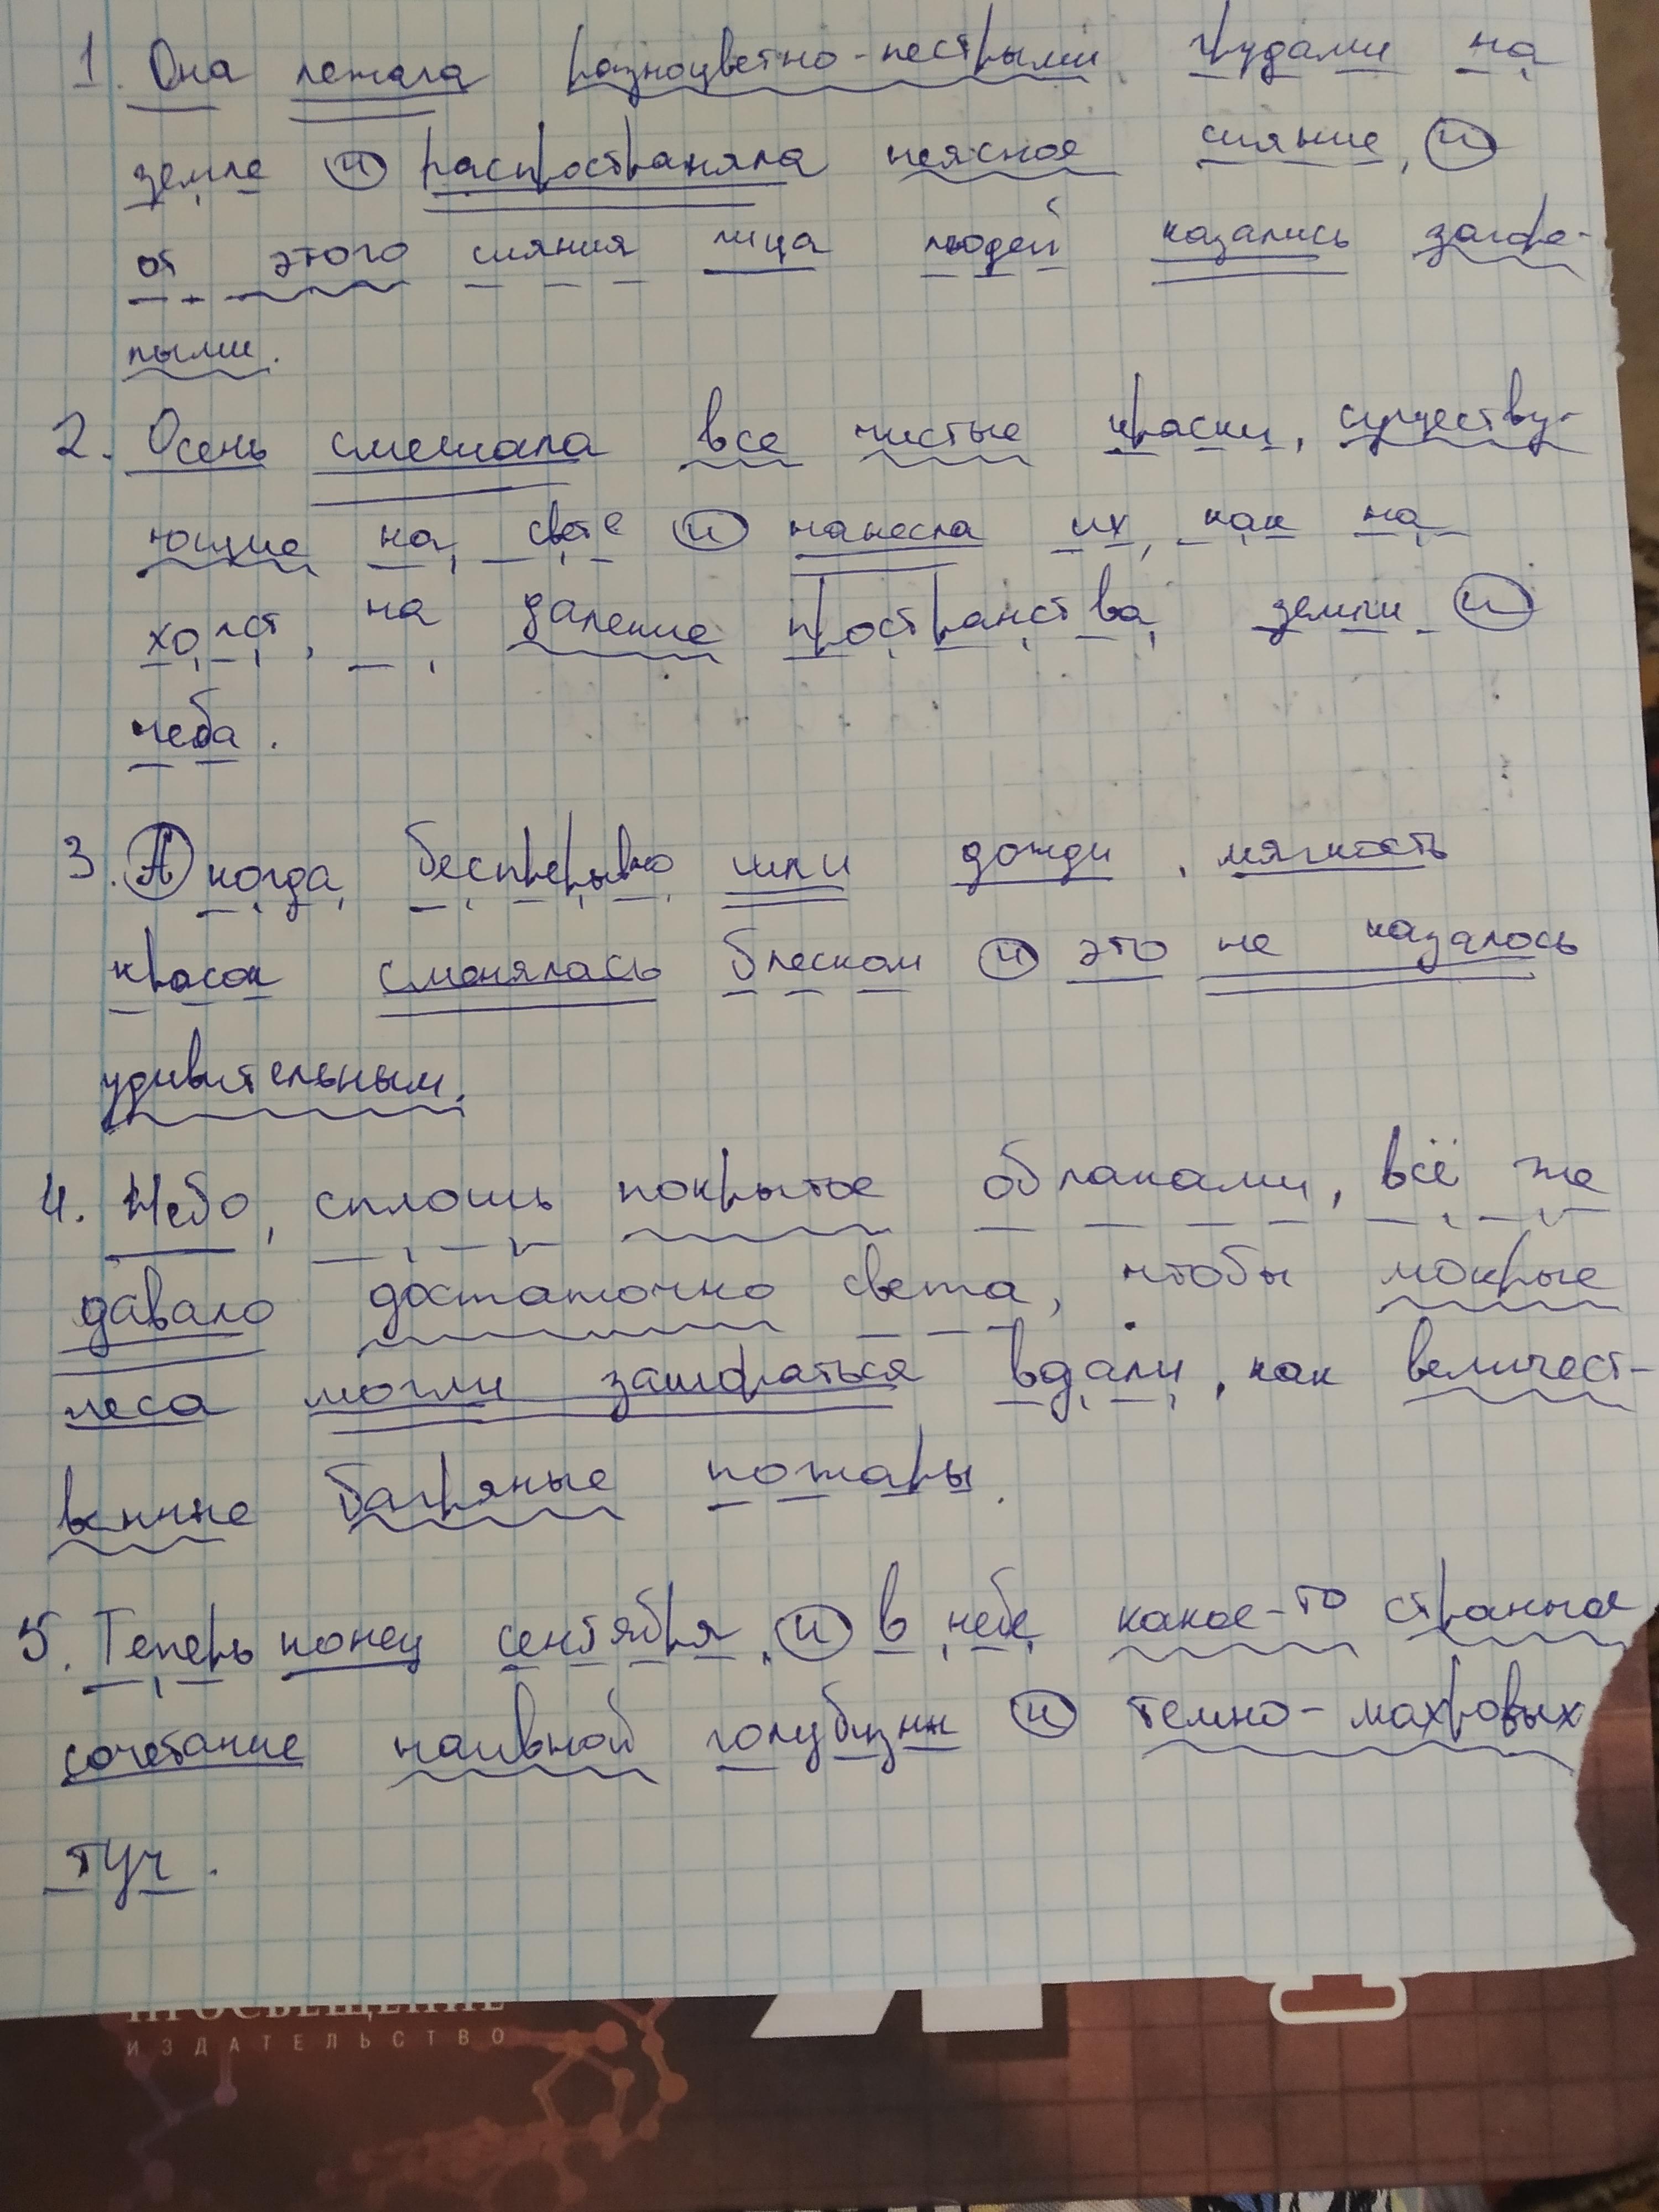 1. Она лежала разноцветно-пестрыми грудами на
земле и распространяла неясное сияние, и
от этого сияния лица людей казались загоре-
лыми.
2. Осень смешала все чистые краски, существу-
ющие на свете и нанесла их, как на
холст, на далекие пространства земли и
неба.
3. А когда беспрерывно шли дожди, мягкость
красок сменялась блеском и это не казалось
удивительным.
4. Небо, сплошь покрытое облаками, всё же
давало достаточно света, чтобы мокрые
леса могли зашораться вдали, как величест-
венные багряные пожары.
5. Теперь конец сентября, и в небе какое-то странное
сочетание наивной голубизны и темно-махровых
туч.
ПРОСВЕЩЕНИЕ
ИЗДАТЕЛЬСТВО